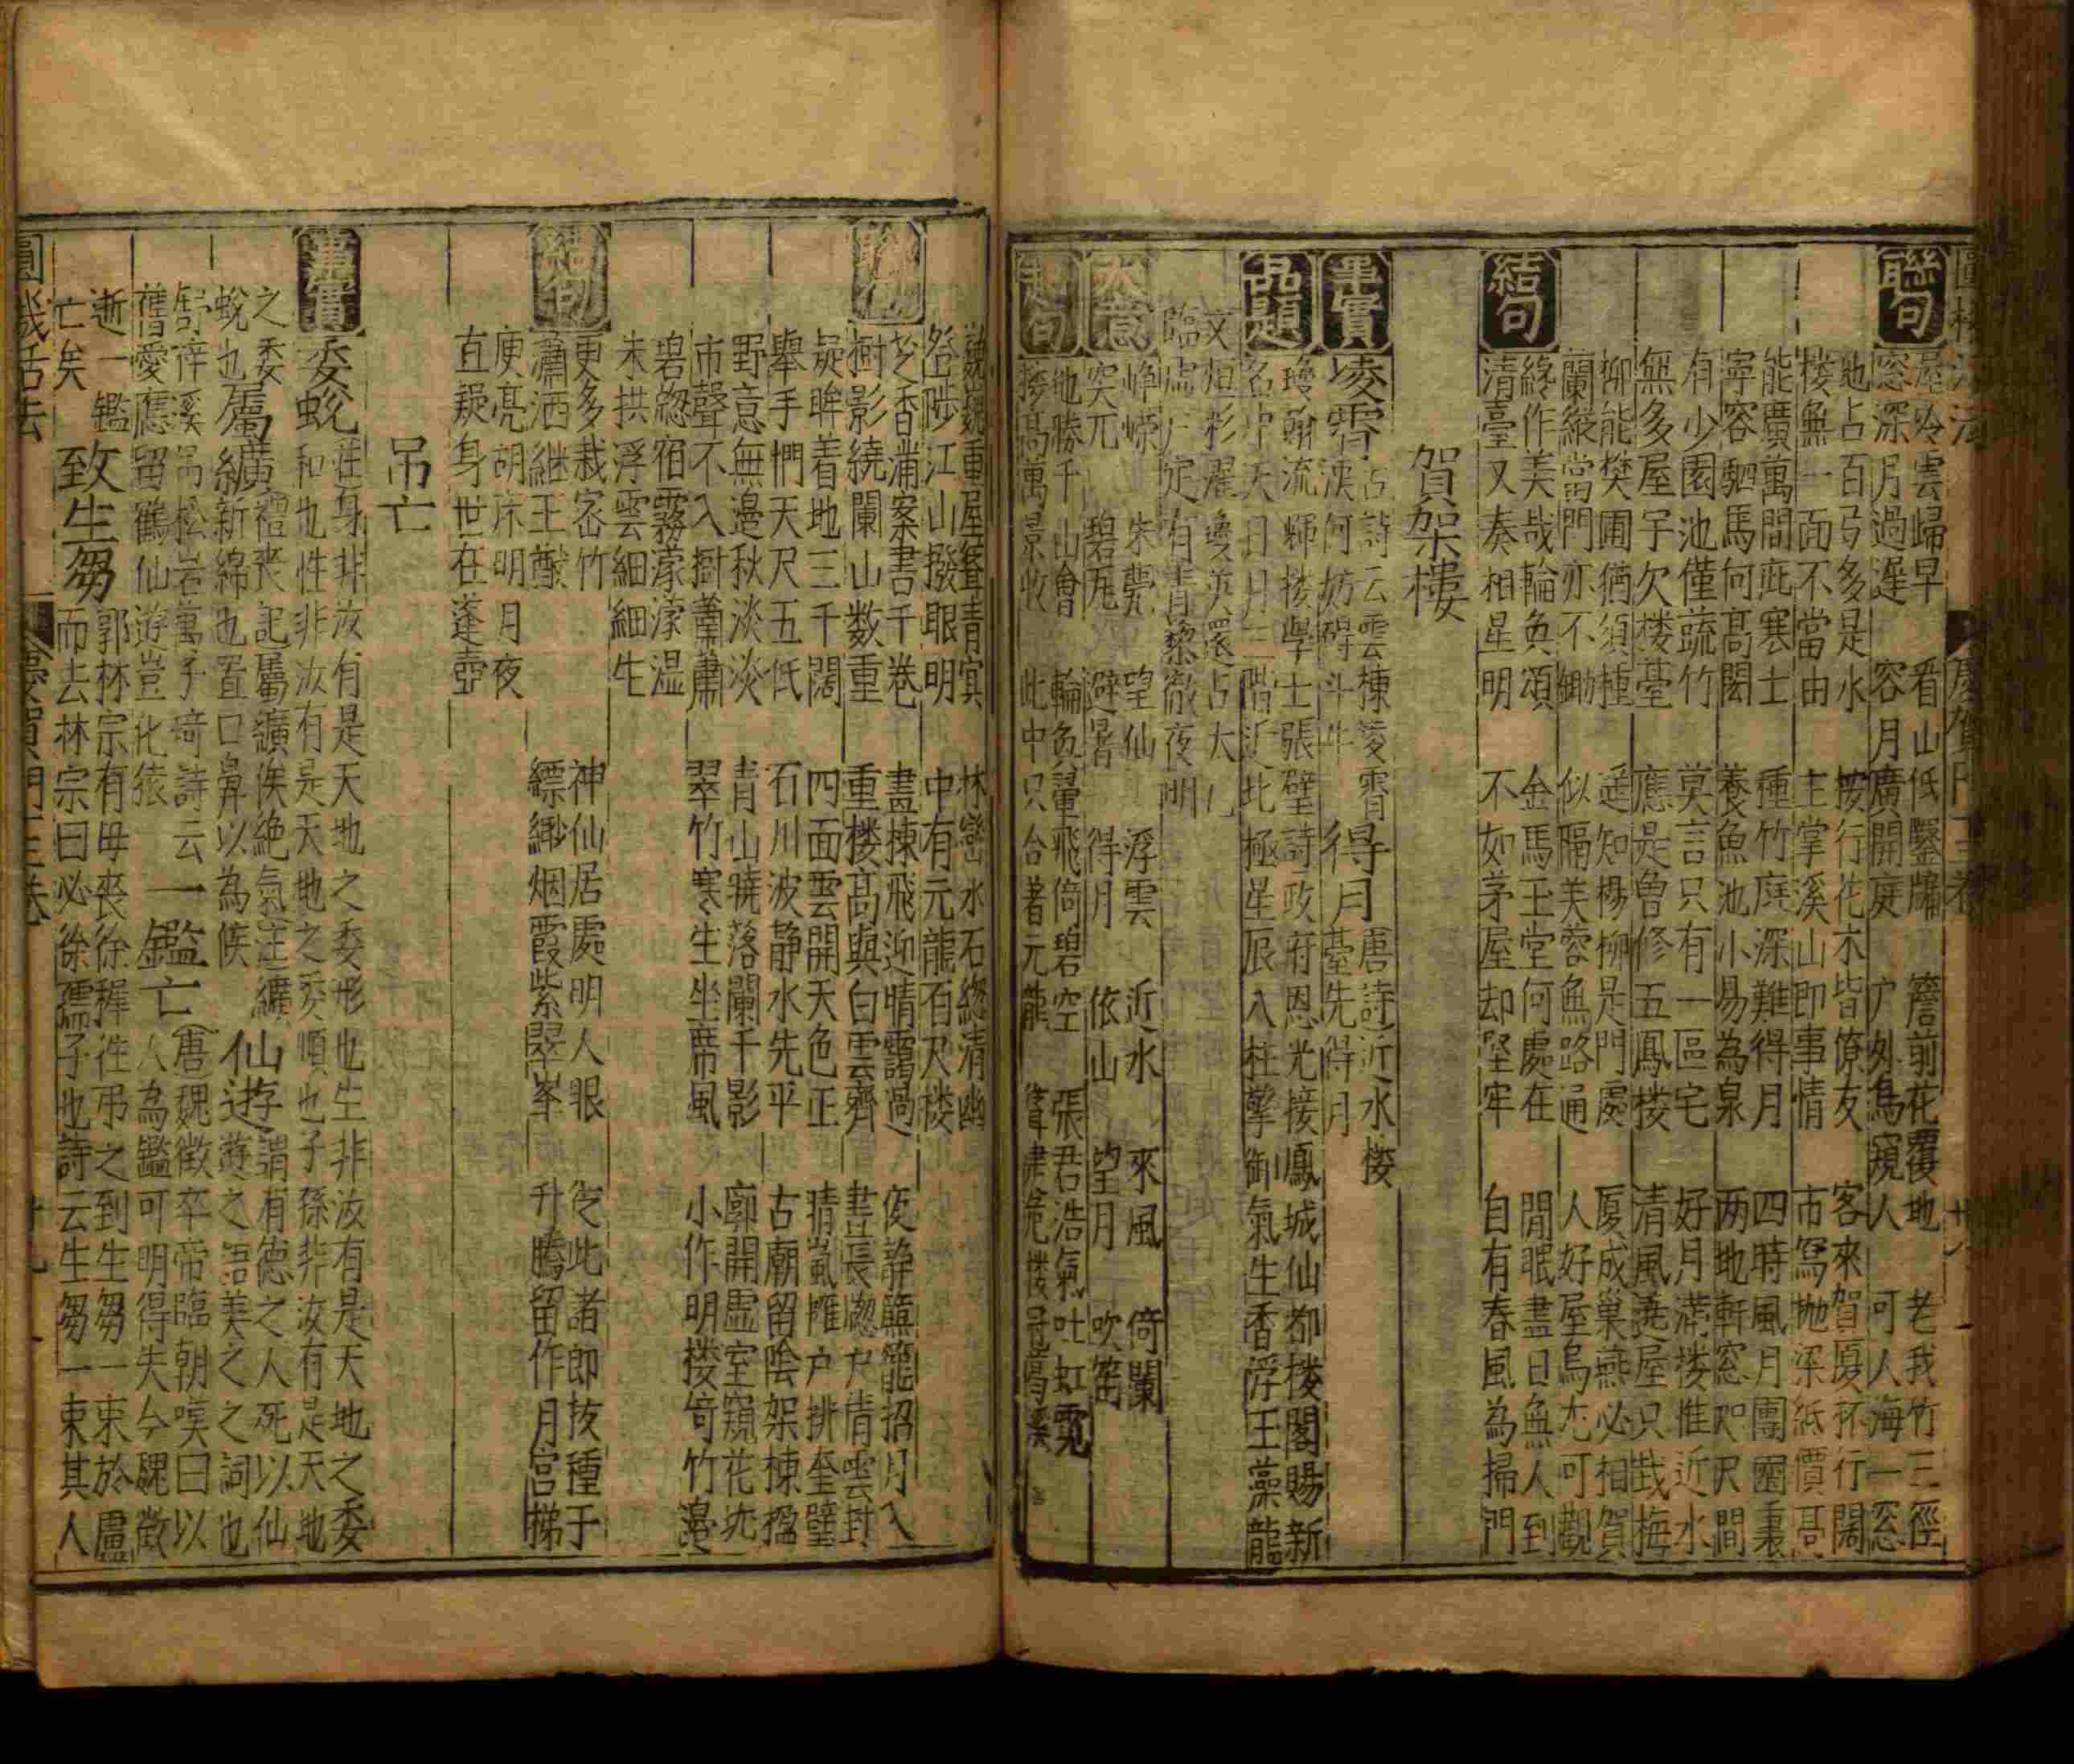 聯句
屋冷雲歸早 看山低鑿牖 簷前花覆地 老我竹三徑
窓深月過遲 容月廣開庭 戶外鳥窺人 可人海一窓
地占百弓多是水 按行花木皆僚友 客來賀厦杯行闊
楼無一面不當山 主掌溪山即事情 市寫拋梁紙價高
能廣萬間庇寒士 種竹庭深難得月 四時風月團圞裏
寧容駟馬何高閎 養魚池小易為泉 两地軒窓咫尺間
有少園池僅蔬竹 莫言只有一區宅 好月滿楼惟近水
無多屋宇欠楼臺 應是曾修五鳳楼 清風遶屋只栽梅
結句
柳能樊圃猶須種 遥知楊柳是門處 厦成巢燕必相賀
蘭縱當門亦不鋤 似隔芙蓉無路通 人好屋烏尤可觀
終作美哉輪奐頌 金馬玉堂何處在 閒眠盡日無人到
清臺又奏相星明 不如茅屋却堅牢 自有春風為掃門
賀架樓
事實
凌霄 古詩云雲棟凌霄漢何妨碍斗牛
得月 唐詩近水楼臺先得月
品題
瓊翰流輝楼學士張璧詩政府恩光接鳳城仙都楼閣賜新
名中天日月三階近北極星辰入柱擎御氣生香浮玉藻龍
文烜彩濯
臨 有青藜徹夜明
大意
峥嶸 朱甍 望仙 浮雲 近水 來風 倚闌
突兀 碧瓦 避暑 得月 依山 望月 吹簫
起句
地勝千山會 輪奐翬飛倚碧空 張君浩氣吐虹霓
楼高萬景收 此中只合著元龍
聯句
巍巍重屋聳青冥 林巒水石總清幽
登陟江山撥眼明 中有元龍百尺楼
芝香滿案書千卷 畫棟飛迎晴靄過 夜静簾籠招月入
樹影繞闌山数重 重楼高與白雲齊 晝長窓戶倩雲封
疑眸着地三千闊 四面雲開天色正 晴嵐雕户排奎璧
舉手捫天尺五低 石川波静水先平 古廟留陰架棟楹
野意無邊秋淡淡 青山曉落闌干影 廓開虚室窺花坑
市聲不入樹蕭蕭 翠竹寒生坐席風 小作明楼倚竹邉
碧窓宿霧濛濛湿
朱拱浮雲細細生
結句
更多栽宻竹 神仙居處明人眼 從此諸郎抜種于
瀟洒継王猷 縹緲烟霞紫翠峯 升騰留作月宫梯
庾亮胡床明月夜
直疑身世在蓬壺
吊亡
事實
委蛻 莊身非汝有是天地之委形也生非汝有是天地之委
和也性非汝有是天地之委順也子孫非汝有是天地
之委蛻也
屬纊 禮喪記屬纊俟絶氣注纊新綿也置口鼻以為候
仙逰 謂有德之人死以仙逰之語美之之詞也
舊愛應留鶴仙遊豈化猿
一鑑亡 唐魏徵卒帝臨朝嘆曰以人為鑑可明得失今魏徵
逝一鑑亡矣
致生芻 郭林宗有毋喪徐穉徃弔之到生芻一束於廬
而去林宗曰必徐孺子也詩云生芻一束其人